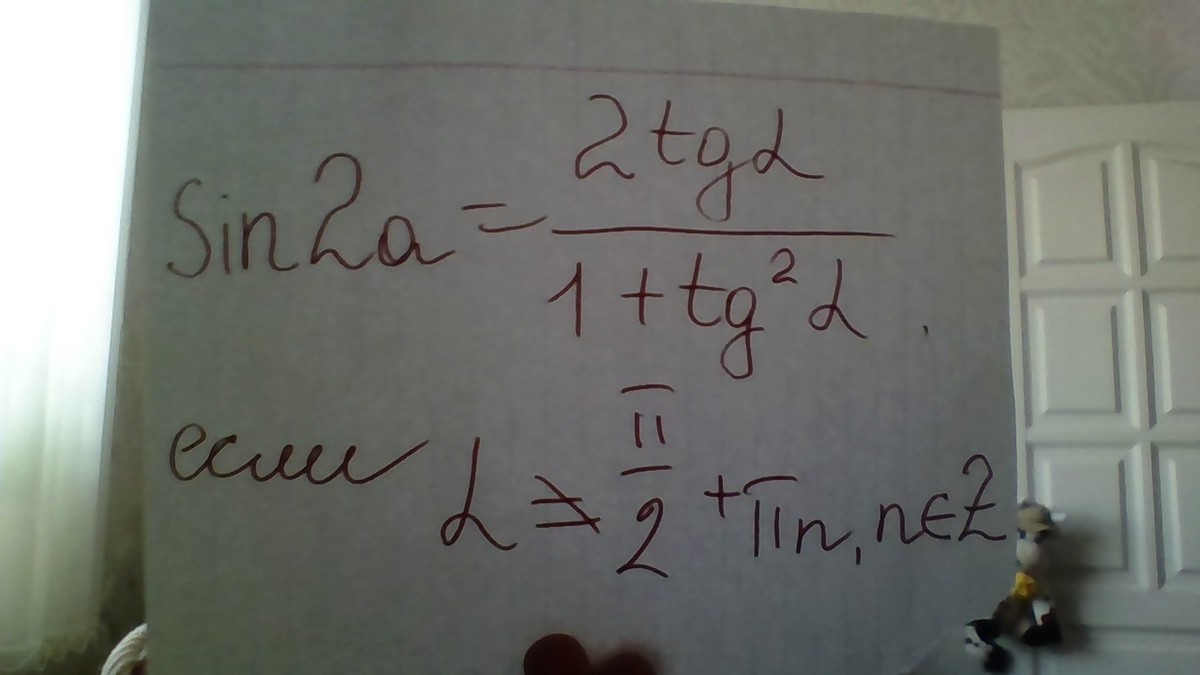 sin2a = \frac{2tgα}{1+tg²α}.
если α ≠ \frac{π}{2} + πn, n∈Z